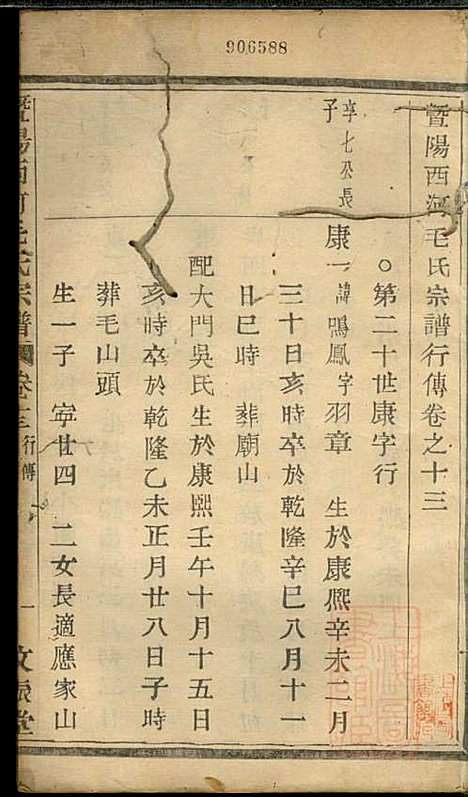 906588
暨陽西河毛氏宗譜行傳卷之十三
○第二十世康字行
享七公長子
康一諱鳴鳳字羽章 生於康熙辛未二月
三十日亥時卒於乾隆辛巳八月十一
日巳時 葬廟山
配大門吳氏生於康熙壬午十月十五日
亥時卒於乾隆乙未正月廿八日子時
葬毛山頭
生一子 寍廿四 二女長適應家山
暨陽西河毛氏宗譜 卷十三 行傳 一